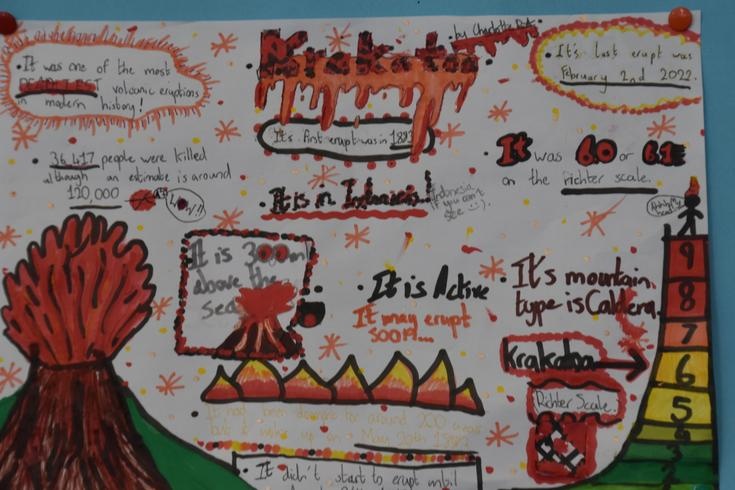 Krakatoa
by Charlotte
It was one of the most
DEADLIEST volcanic eruptions
in modern history!
It's last erupt was
February 2nd 2022.
It's first erupt was in 1883
36,417 people were killed
although an estimate is around
120,000
It was 6.0 or 6.1
on the richter scale.
It is in Indonesia!
Indonesia
if you can't
see :).
It is
above the
sea
It is Active
It may erupt
soon...
It's mountain
type is Caldera.
Krakatoa
Richter Scale.
9
8
7
6
5
4
3
It had been dormant for around 200 years
but it woke up on May 20th
It didn't start to erupt until